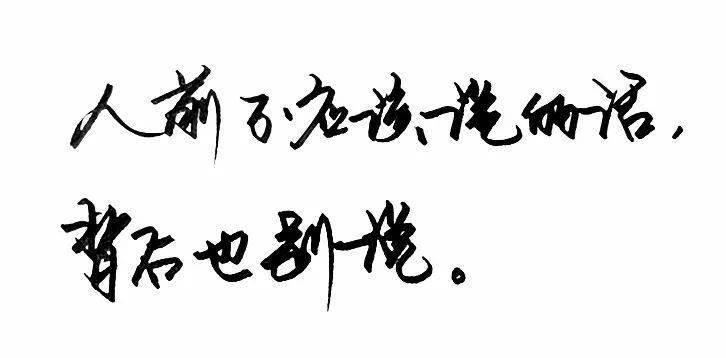 人前不应该说的话，
背后也别说。